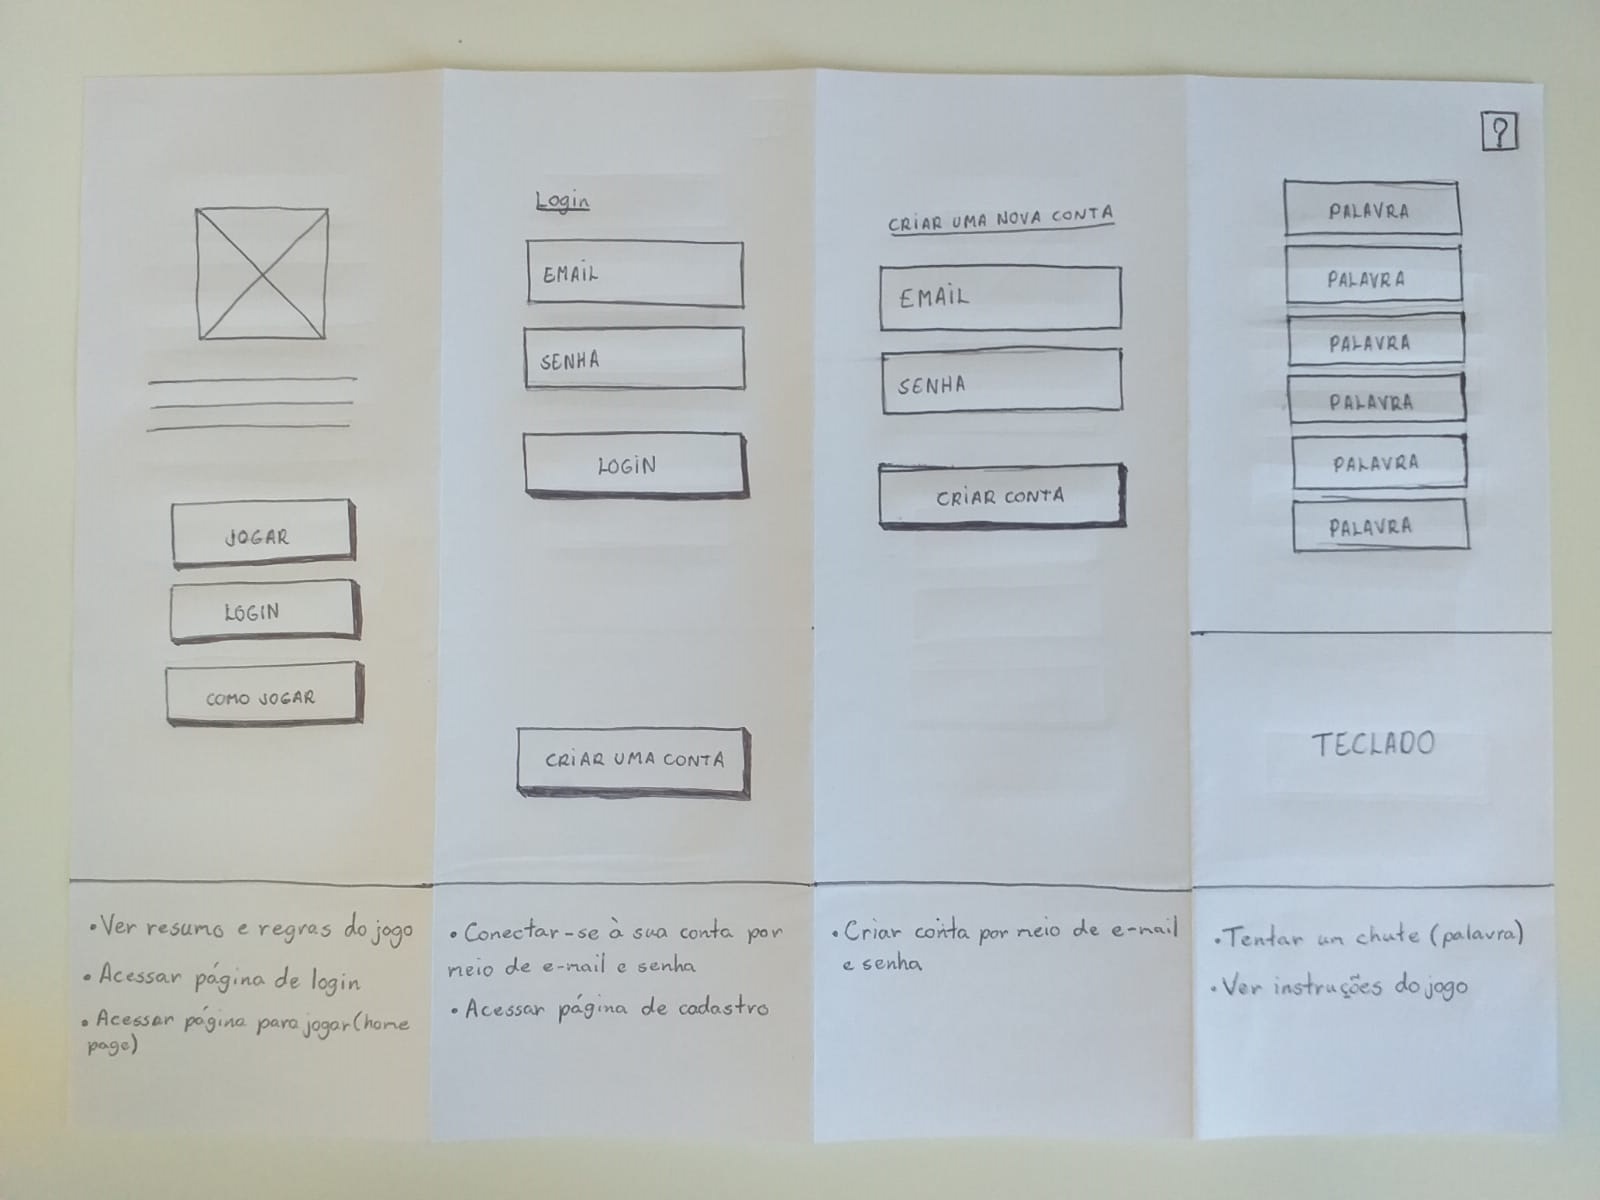 JOGAR
LOGIN
COMO JOGAR
• Ver resumo e regras do jogo
• Acessar página de login
• Acessar página para jogar (home
page)
Login
EMAIL
SENHA
LOGIN
CRIAR UMA CONTA
• Conectar-se à sua conta por
meio de e-mail e senha
• Acessar página de cadastro
CRIAR UMA NOVA CONTA
EMAIL
SENHA
CRIAR CONTA
• Criar conta por meio de e-mail
e senha
?
PALAVRA
PALAVRA
PALAVRA
PALAVRA
PALAVRA
PALAVRA
TECLADO
• Tentar um chute (palavra)
• Ver instruções do jogo